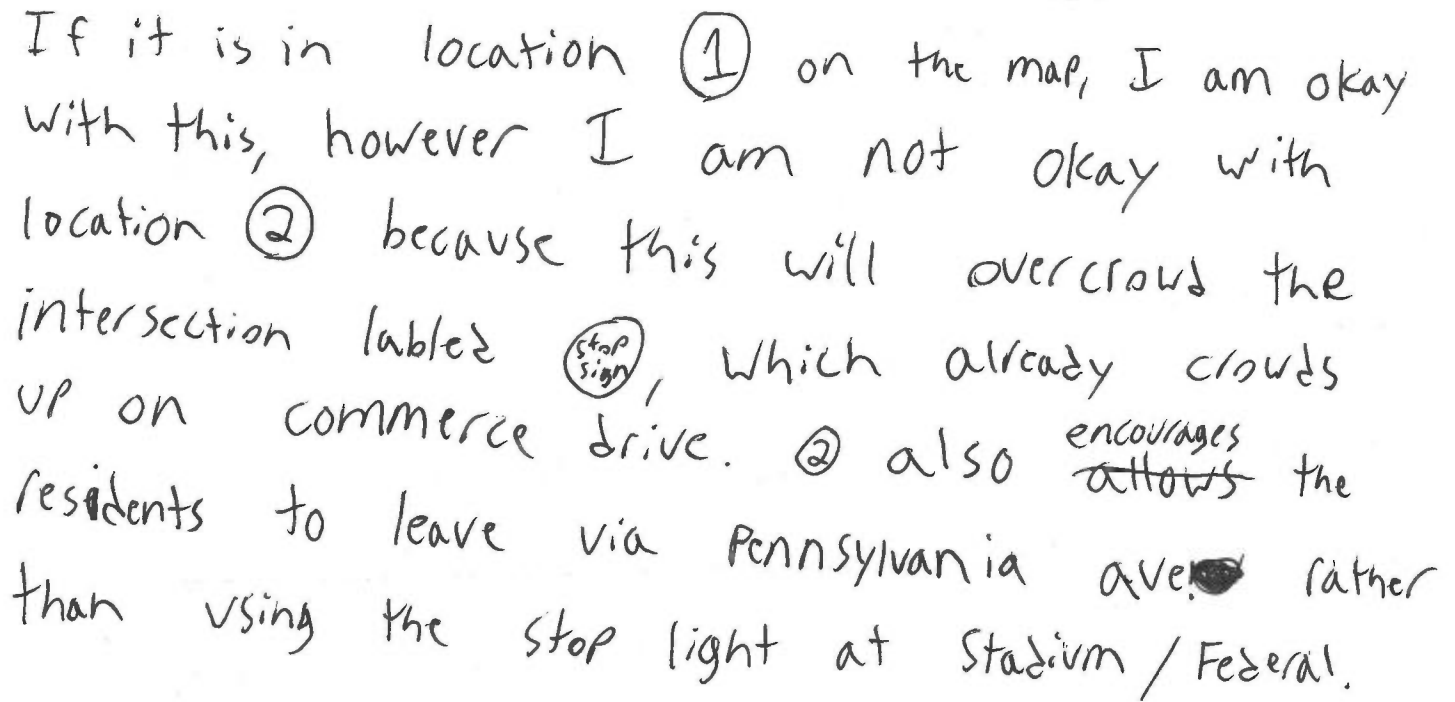 If it is in location ① on the map, I am okay
with this, however I am not okay with
location ② because this will overcrowd the
intersection labled (stop sign), which already crowds
up on commerce drive. ② also encourages ~~allows~~ the
residents to leave via Pennsylvania ave. rather
than using the stop light at Stadium / Federal.